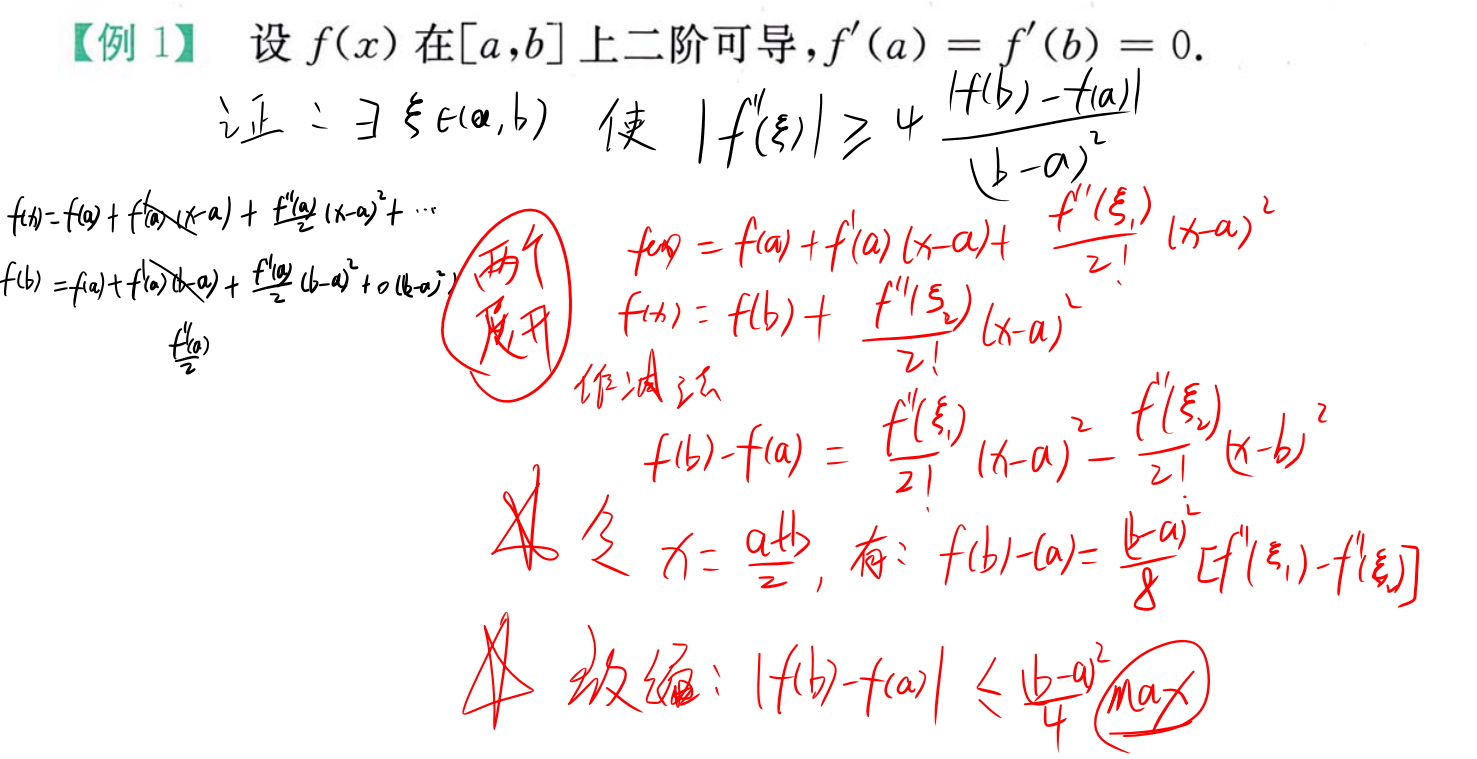 【例 1】 设 f(x) 在[a,b] 上二阶可导,f′(a) = f′(b) = 0.
证：∃ ξ∈(a,b) 使 |f''(ξ)| ≥ 4 |f(b)-f(a)| / (b-a)²
f(x)=f(a)+f'(a)(x-a)+ f''(a)/2 (x-a)²+ …
f(b)=f(a)+f'(a)(b-a)+ f''(a)/2 (b-a)²+o(b-a)²)
f''(a)/2
两个
展开
f(x) = f(a)+f'(a)(x-a)+ f''(ξ₁)/2! (x-a)²
f(x) = f(b)+ f''(ξ₂)/2! (x-a)²
作减法
f(b)-f(a) = f''(ξ₁)/2! (x-a)² - f''(ξ₂)/2! (x-b)²
令 x= a+b/2, 有: f(b)-(a)= (b-a)²/8 [f''(ξ₁)-f''(ξ₂)]
放缩: |f(b)-f(a)| ≤ (b-a)²/4 max